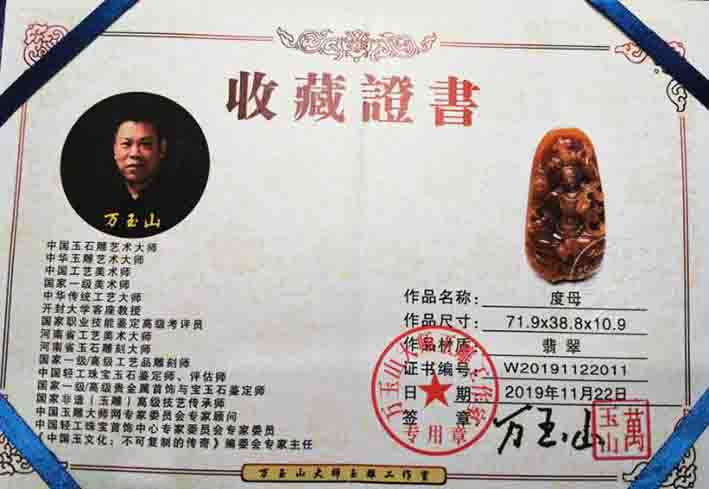 收藏證書
万玉山
中国玉石雕艺术大师
中华玉雕艺术大师
中国工艺美术师
国家一级美术师
中华传统工艺大师
开封大学客座教授
国家职业技能鉴定高级考评员
河南省工艺美术大师
河南省玉石雕刻大师
国家一级/高级工艺品雕刻师
中国轻工珠宝玉石鉴定师、评估师
国家一级/高级贵金属首饰与宝玉石鉴定师
国家非遗（玉雕）高级技艺传承师
中国玉雕大师网专家委员会专家顾问
中国轻工珠宝首饰中心专家委员会专家委员
《中国玉文化：不可复制的传奇》编委会专家主任
作品名称： 度母
作品尺寸： 71.9x38.8x10.9
作品材质： 翡翠
证书编号： W20191122011
日期： 2019年11月22日
签章： 万玉山
萬玉山
万玉山大师
专用章
万玉山大师玉雕工作室